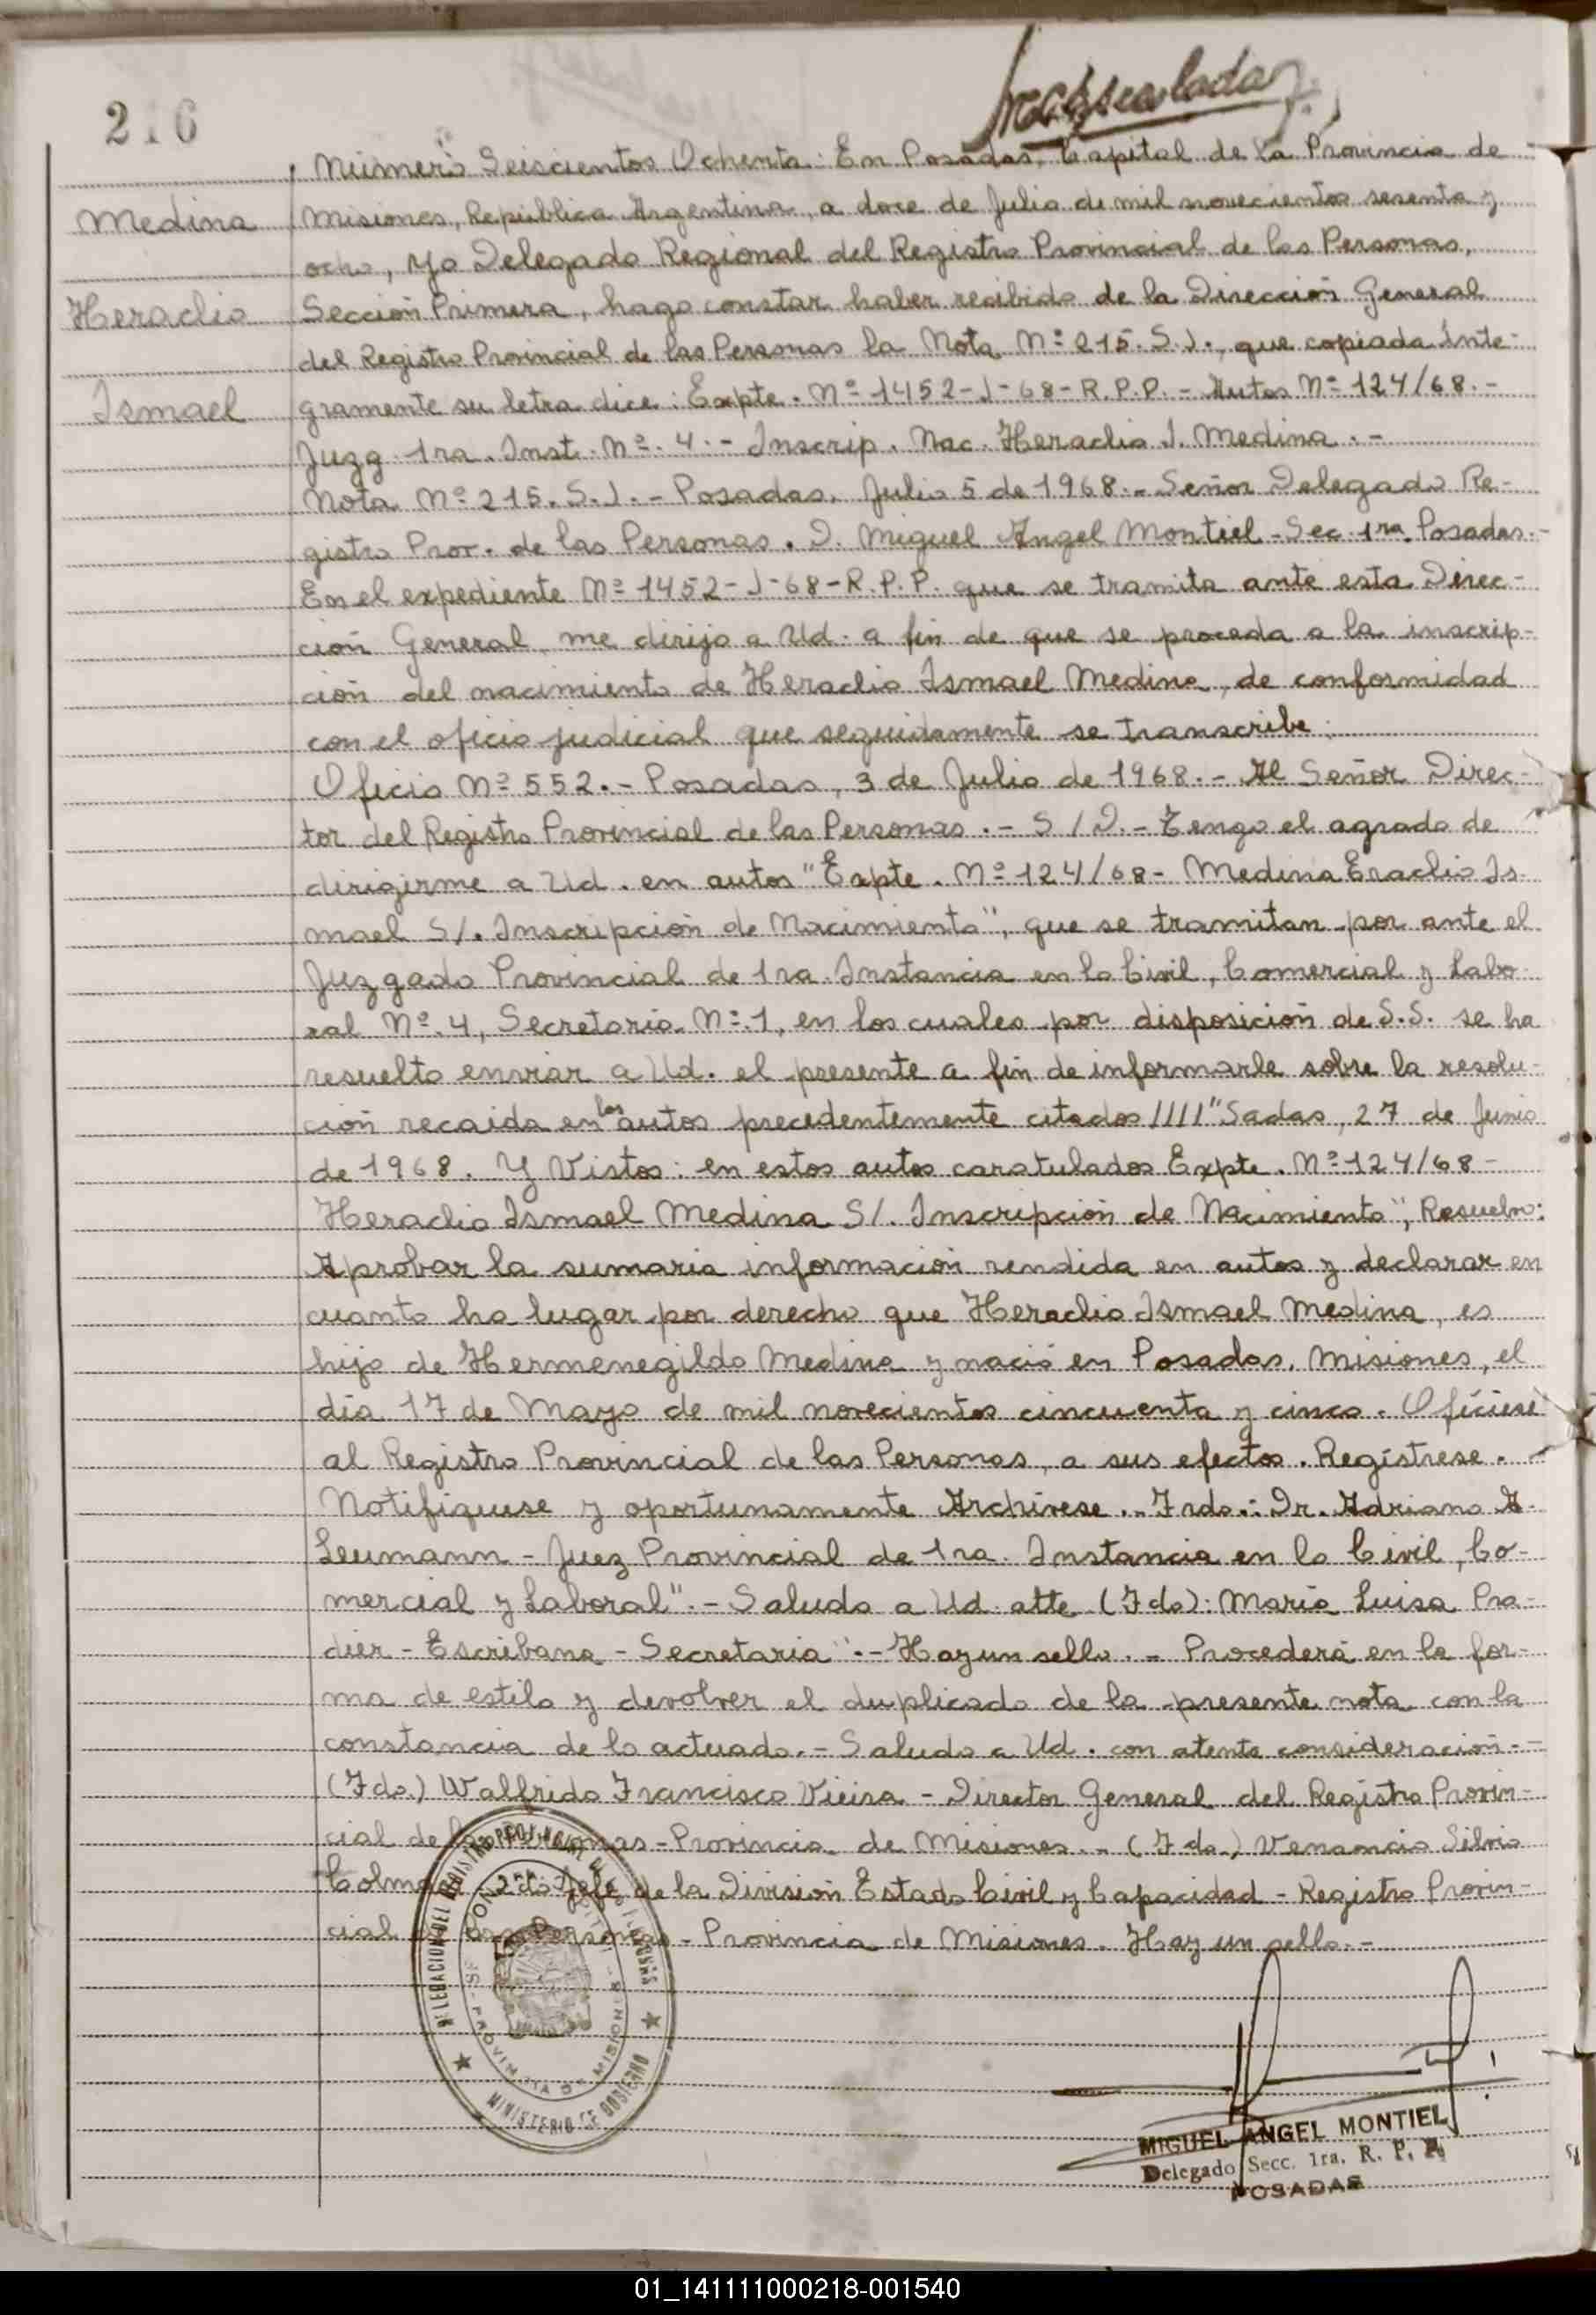 216
Medina
Heraclio
Ismael
Número Seiscientos Ochenta: En Posadas, Capital de la Provincia de
Misiones, República Argentina, a doce de Julio de mil novecientos sesenta y
ocho, yo Delegado Regional del Registro Provincial de las Personas,
Sección Primera, hago constar haber recibido de la Dirección General
del Registro Provincial de las Personas la Nota Nº 215. S.J., que copiada Inte-
gramente su letra dice: Expte. Nº 1452-J-68-R.P.P. - Autos Nº 124/68.-
Juzg. 1ra. Inst. Nº. 4.- Inscrip. Nac. Heraclio I. Medina.-
Nota Nº 215. S.J.- Posadas, Julio 5 de 1968.- Señor Delegado Re-
gistro Prov. de las Personas. D. Miguel Angel Montiel - Sec. 1ra. Posadas.-
En el expediente Nº 1452-J-68-R.P.P. que se tramita ante esta Direc-
ción General, me dirijo a Ud. a fin de que se proceda a la inscrip-
ción del nacimiento de Heraclio Ismael Medina, de conformidad
con el oficio judicial que seguidamente se transcribe:
Oficio Nº 552.- Posadas, 3 de Julio de 1968.- Al Señor Direc-
tor del Registro Provincial de las Personas.- S/D.- Tengo el agrado de
dirigirme a Ud. en autos "Expte. Nº 124/68- Medina Eraclio Is-
mael S/. Inscripción de Nacimiento", que se tramitan por ante el
Juzgado Provincial de 1ra. Instancia en lo Civil, Comercial y Labo-
ral Nº. 4, Secretaría Nº. 1, en los cuales por disposición de S.S. se ha
resuelto enviar a Ud. el presente a fin de informarle sobre la resolu-
ción recaida en los autos precedentemente citados //// "Sadas, 27 de Junio
de 1968. Y Vistos: en estos autos caratulados Expte. Nº 124/68-
Heraclio Ismael Medina S/. Inscripción de Nacimiento", Resuelvo:
Aprobar la sumaria información rendida en autos y declarar en
cuanto ha lugar por derecho que Heraclio Ismael Medina, es
hijo de Hermenegildo Medina y nació en Posadas, Misiones, el
día 17 de Mayo de mil novecientos cincuenta y cinco. Oficiese
al Registro Provincial de las Personas, a sus efectos. Regístrese.-
Notifiquese y oportunamente Archívese.- Frdo.: Dr. Adriano A.
Leumann - Juez Provincial de 1ra. Instancia en lo Civil, Co-
mercial y Laboral".- Saludo a Ud. atte. (Fdo): María Luisa Pra-
dier - Escribana - Secretaria".- Hay un sello.- Procederá en la for-
ma de estilo y devolver el duplicado de la presente nota con la
constancia de lo actuado.- Saludo a Ud. con atenta consideración.-
(Fdo.) Walfrido Francisco Vieira - Director General del Registro Provin-
cial de las Personas - Provincia de Misiones.- (Fdo.) Venancio Silvio
2do Jefe de la División Estado Civil y Capacidad - Registro Provin-
cial de las Personas - Provincia de Misiones. Hay un sello.-
DELEGACION DEL REGISTRO PROVINCIAL DE LAS PERSONAS
PROVINCIA DE MISIONES
MINISTERIO DE GOBIERNO
MIGUEL ANGEL MONTIEL
Delegado Secc. 1ra. R. P. P.
POSADAS
01_141111000218-001540